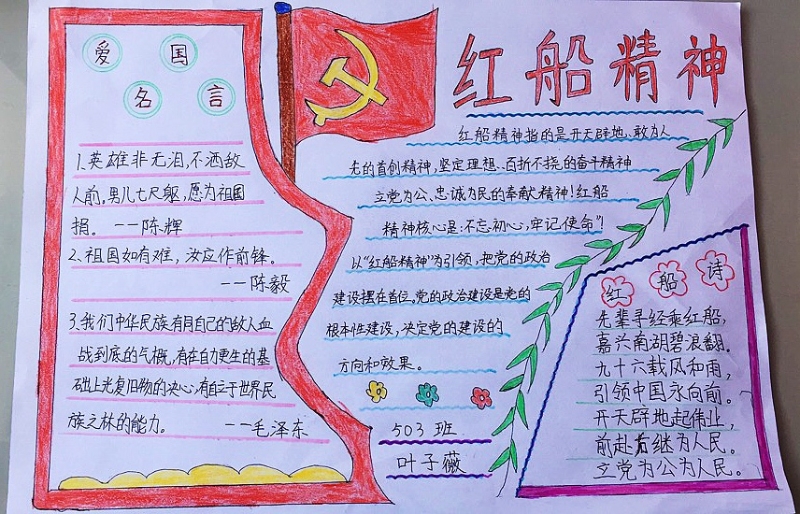 爱国
名言
1.英雄非无泪,不洒敌
人前,男儿七尺躯,愿为祖国
捐。——陈辉
2、祖国如有难,汝应作前锋。
——陈毅
3.我们中华民族有同自己的敌人血
战到底的气概,有在自力更生的基
础上光复旧物的决心,有自立于世界民
族之林的能力。 ——毛泽东
红船精神
红船精神指的是开天辟地、敢为人
先的首创精神,坚定理想、百折不挠的奋斗精神
立党为公、忠诚为民的奉献精神!红船
精神核心是:不忘初心,牢记使命"!
以"红船精神"为引领,把党的政治
建设摆在首位,党的政治建设是党的
根本性建设,决定党的建设的
方向和效果。
503班
叶子薇
红船诗
先辈寻经乘红船,
嘉兴南湖碧浪翻。
九十六载风和雨,
引领中国永向前。
开天辟地起伟业,
前赴后继为人民。
立党为公为人民。